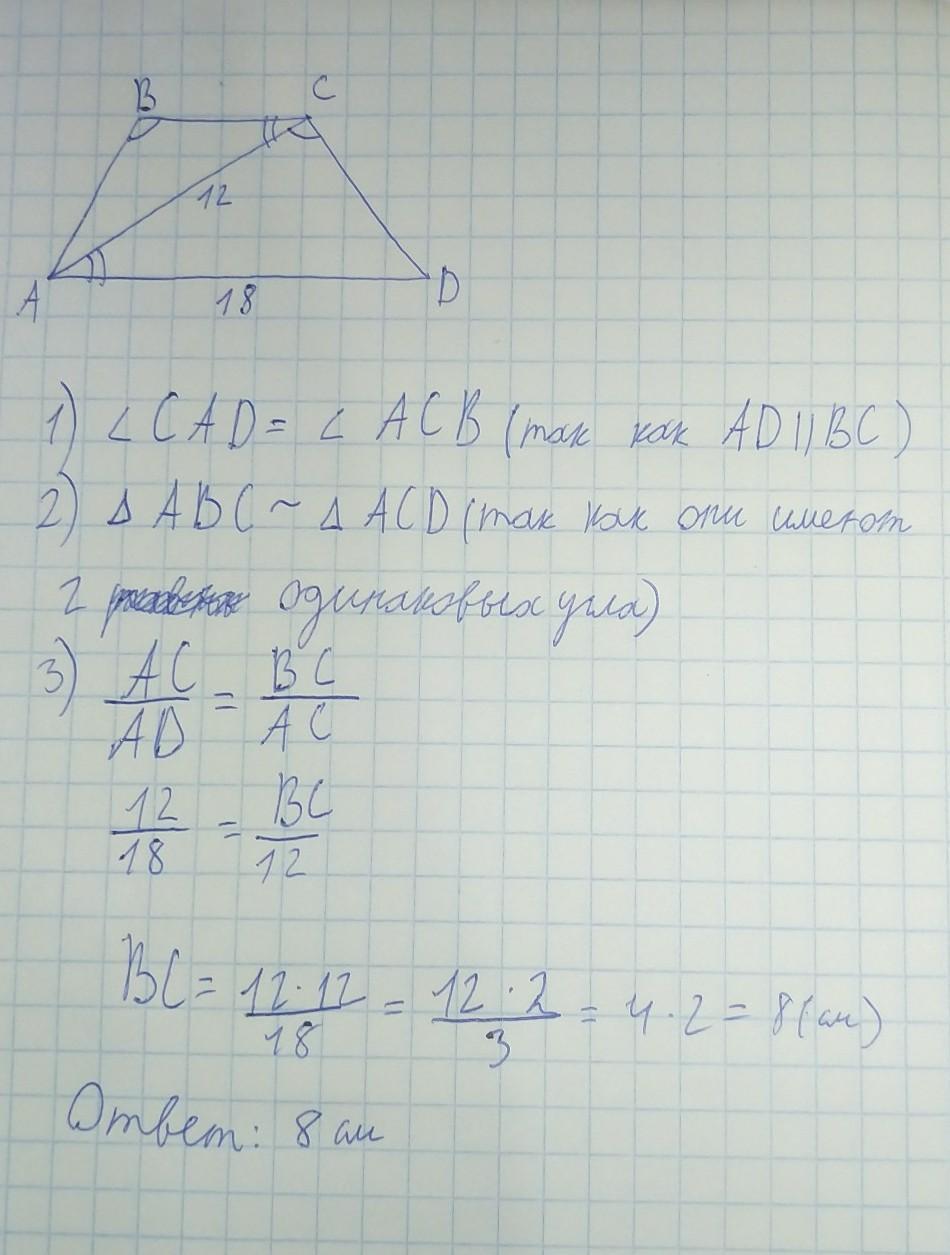 B C
12
A 18 D
1) ∠CAD = ∠ACB (так как AD||BC)
2) Δ ABC ~ Δ ACD (так как они имеют
2 одинаковых угла)
3) AC/AD = BC/AC
12/18 = BC/12
BC = 12·12/18 = 12·2/3 = 4·2 = 8(см)
Ответ: 8 см